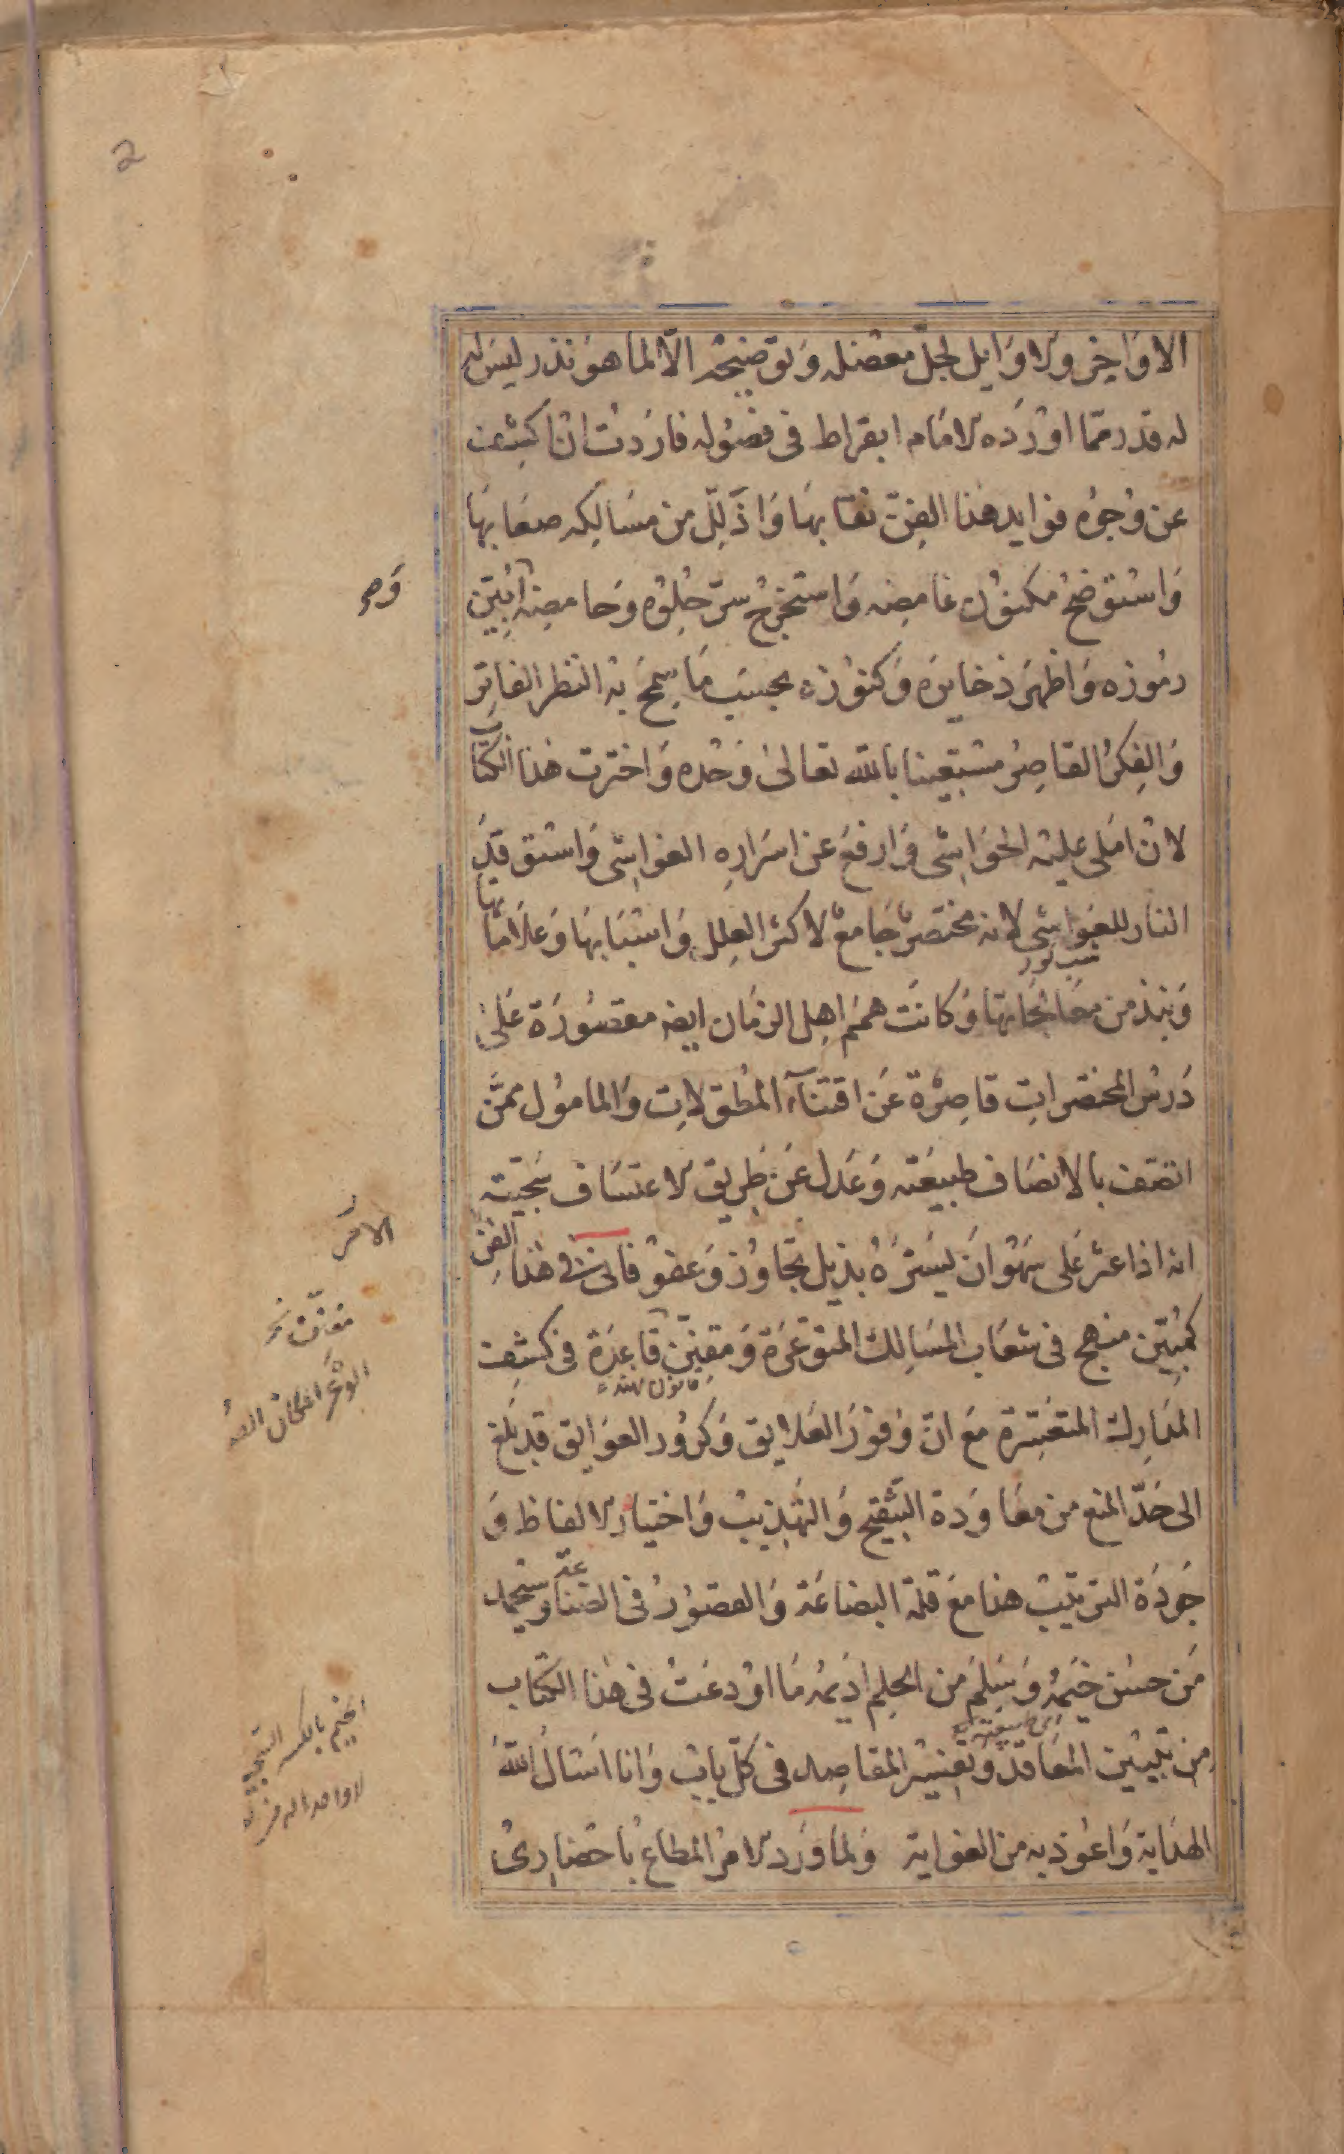 الاواخر والاوايل لحل معضله وتوضيحه الا لما هو نذر ليس له
له قدر مما اورده الامام ابقراط فى فصوله فاردت ان اكشف
عن وجوه فوايد هذا الفن نقابها واذلل من مسالكه صعابها
واستوضح مكنون غامضه واستخرج سر حلوه وحامضه ابين
رموزه واظهر ذخايره وكنوزه بحسب ما سمح به النظر الفاتر
والفكر القاصر مستعينا بالله تعالى وحده واخترت هذا الكتاب
لان املى عليه الحواشى وارفع عن اسراره الغواشى واستوقد
النار للغواشى لانه مختصر جامع لاكثر العلل واسبابها وعلاماتها
ونبذ من معالجاتها وكانت همم اهل الزمان ايضه مقصورة على
درس المختصرات قاصرة عن اقتناء المطولات والمامول ممن
اتصف بالانصاف طبيعته وعدل عن طريق الاعتساف سجيته
انه اذا عثر على سهو ان يستره بذيل تجاوز وعفو فانى فى هذا الفن
كمبين منهج فى شعاب المسالك المتوعرة ومقنن قاعدة فى كشف
المدارك المتعسرة مع ان وفور العلايق وكرور العوايق قد بلغ
الى حد المنع من معاودة التنقيح والتهذيب واختيار الالفاظ و
جودة الترتيب هذا مع قلة البضاعة والقصور فى الصناعة وسيحمد
من حسن خيمه وسلم من الحلم اديمه ما اودعت فى هذا الكتاب
من تبيين المعاقد وتفسير المقاصد فى كل باب وانا اسال الله
الهداية واعوذ به من الغواية ولما ورد الامر المطاع باحضارى
2
الامر
الخيم بالكسر